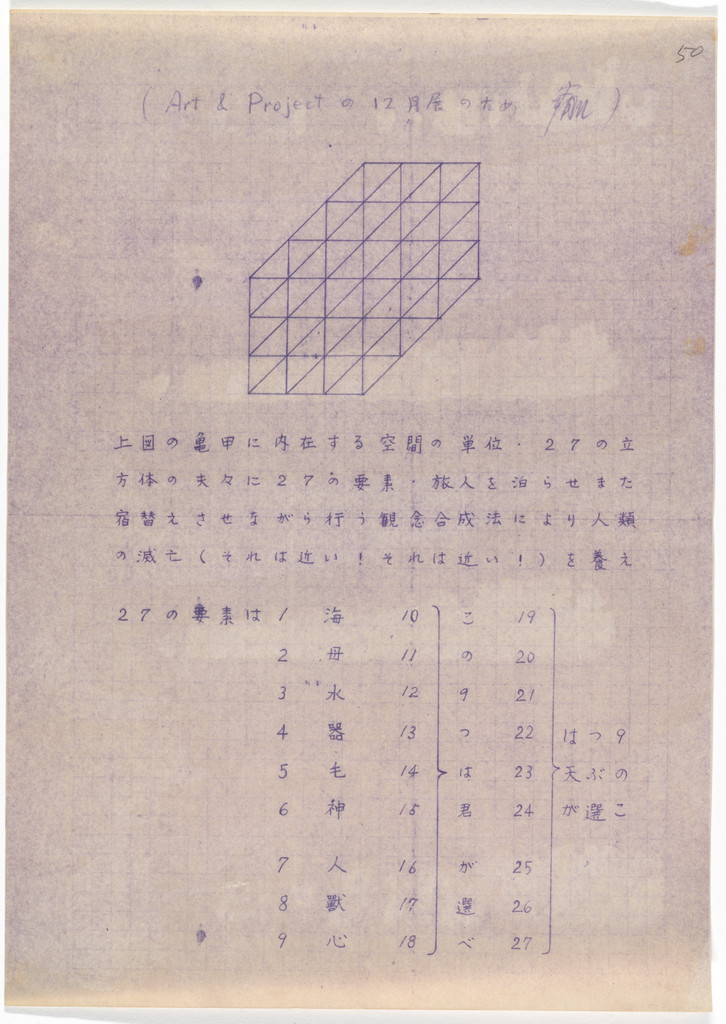 50
(Art & Projectの12月展のため 瀚)
上図の亀甲に内在する空間の単位・27の立
方体の夫々に27の要素・旅人を泊らせまた
宿替えさせながら行う観念合成法により人類
の滅亡(それは近い!それは近い!)を養え
27の要素は 1 海 10 こ 19
2 母 11 の 20
3 水 12 9 21
4 器 13 つ 22 はつ9
5 毛 14 は 23 天ぶの
6 神 15 君 24 が選こ
7 人 16 が 25
8 獣 17 選 26
9 心 18 べ 27